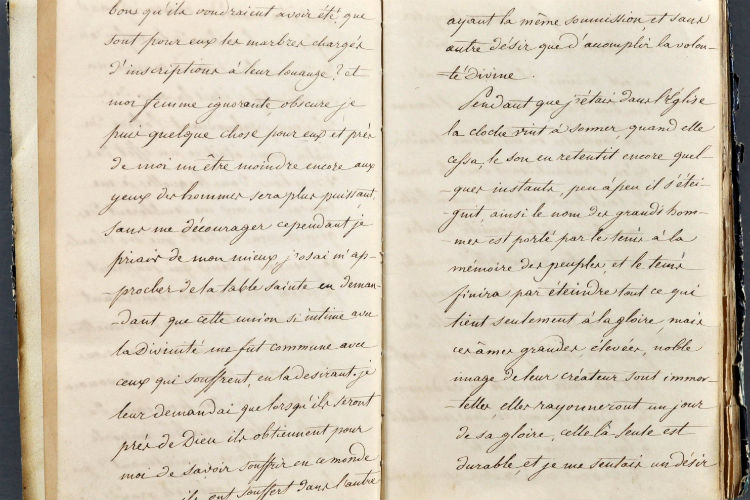 bon qu'ils voudraient avoir été, que
sont pour eux les marbres chargés
d'inscriptions à leur louange ? et
moi femme ignorante, obscure je
puis quelque chose pour eux et près
de moi un être moindre encore aux
yeux des hommes sera plus puissant,
sans me décourager cependant je
priais de mon mieux, j'osai m'ap-
-procher de la table sainte en deman-
-dant que cette union si intime avec
la Divinité me fut commune avec
ceux qui souffrent, en la desirant. je
leur demandai que lorsqu'ils seront
près de Dieu ils obtiennent pour
moi de savoir souffrir en ce monde
ils ont souffert dans l'autre
ayant la même soumission et sans
autre désir que d'acomplir la volon-
-té divine.
Pendant que j'étais dans l'Église
la cloche vint à sonner, quand elle
cessa, le son en retentit encore quel-
-ques instants, peu à peu il s'étei-
-gnit, ainsi le nom des grands hom-
-mes est porté par le tems à la
mémoire des peuples, et le tems
finira par éteindre tout ce qui
tient seulement à la gloire, mais
ces âmes grandes, élevées, noble
image de leur créateur sont immor-
-telles, elles rayonneront un jour
de sa gloire, celle là seule est
durable, et je me sentais un désir